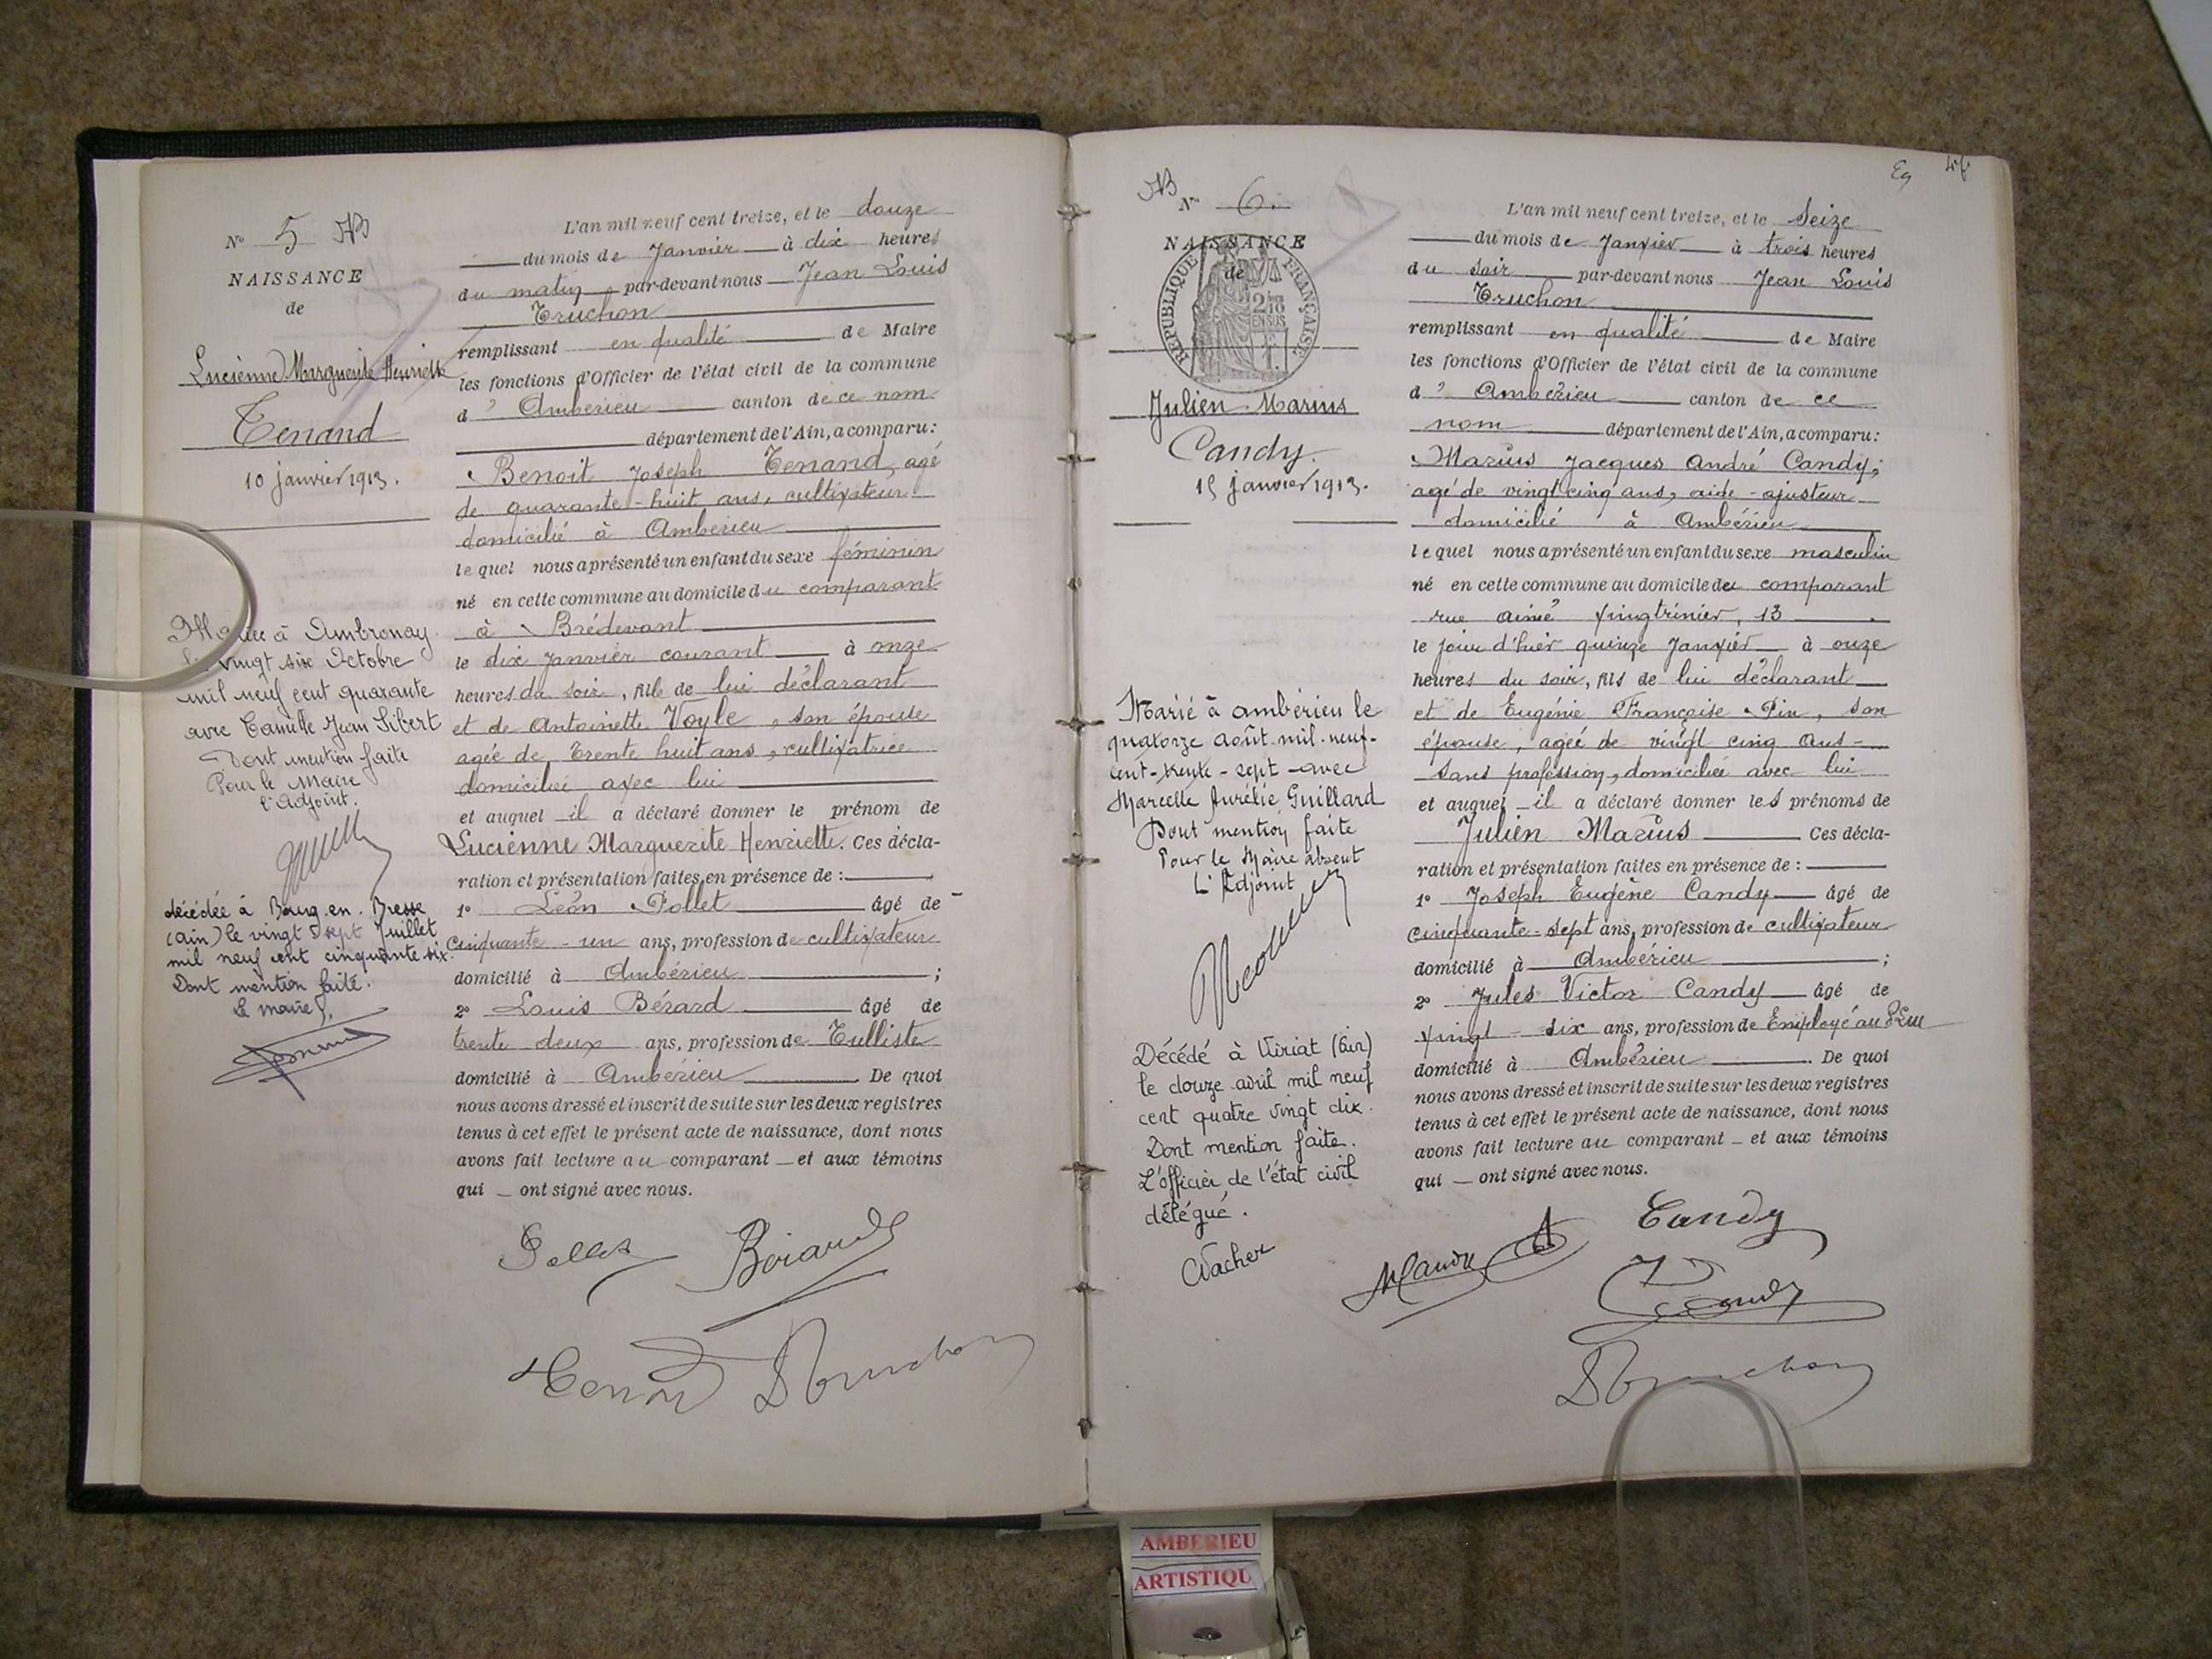 N° 5
NAISSANCE
de
Lucienne Marguerite Henriette
Tenand
10 janvier 1913.
Mariée à Ambronay
le vingt six Octobre
mil neuf cent quarante
avec Camille Jean Sibert
Dont mention faite
Pour le Maire
l'Adjoint.
décédée à Bourg-en-Bresse
(Ain) le vingt sept Juillet
mil neuf cent cinquante-six.
Dont mention faite.
Le maire,
L'an mil neuf cent treize, et le douze
du mois de Janvier à dix heures
du matin par-devant nous Jean Louis
Truchon
remplissant en qualité de Maire
les fonctions d'Officier de l'état civil de la commune
d' Ambérieu canton de ce nom.
département de l'Ain, a comparu :
Benoit Joseph Tenand, agé
de quarante-huit ans, cultivateur
domicilié à Ambérieu
lequel nous a présenté un enfant du sexe féminin
né en cette commune au domicile du comparant
à Brédevant
le dix Janvier courant à onze
heures du soir, fille de lui déclarant
et de Antoinette Voyle, son épouse
agée de trente huit ans, cultivatrice
domiciliée avec lui
et auquel il a déclaré donner le prénom de
Lucienne Marguerite Henriette. Ces décla-
ration et présentation faites en présence de :
1° Léon Pollet âgé de
cinquante-un ans, profession de cultivateur
domicilié à Ambérieu ;
2° Louis Bérard âgé de
trente deux ans, profession de Tulliste
domicilié à Ambérieu . De quoi
nous avons dressé et inscrit de suite sur les deux registres
tenus à cet effet le présent acte de naissance, dont nous
avons fait lecture au comparant et aux témoins
qui ont signé avec nous.
Bérard
Tenand Truchon
N° 6.
NAISSANCE
de
REPUBLIQUE FRANÇAISE
2/10
EN SUS
Julien Marius
Candy.
15 janvier 1913.
Marié à Ambérieu le
quatorze Août mil-neuf-
cent-trente-sept avec
Marcelle Aurélie Guillard
Dont mention faite
Pour le Maire absent
L'Adjoint
Décédé à Viriat (Ain)
le douze avril mil neuf
cent quatre vingt dix.
Dont mention faite.
L'officier de l'état civil
délégué.
Vacher
L'an mil neuf cent treize, et le Seize
du mois de Janvier à trois heures
du soir par-devant nous Jean Louis
Truchon
remplissant en qualité de Maire
les fonctions d'Officier de l'état civil de la commune
d' Ambérieu canton de ce
nom département de l'Ain, a comparu :
Marius Jacques André Candy,
agé de vingt cinq ans, aide-ajusteur
domicilié à Ambérieu
lequel nous a présenté un enfant du sexe masculin
né en cette commune au domicile du comparant
rue aimé vingtrinier, 13
le jour d'hier quinze Janvier à onze
heures du soir, fils de lui déclarant
et de Eugénie Françoise Pin, son
épouse, agée de vingt cinq ans
sans profession, domiciliée avec lui
et auquel il a déclaré donner les prénoms de
Julien Marius Ces décla-
ration et présentation faites en présence de :
1° Joseph Eugène Candy âgé de
cinquante-sept ans, profession de cultivateur
domicilié à Ambérieu ;
2° Jules Victor Candy âgé de
vingt-six ans, profession de Employé au PLM
domicilié à Ambérieu . De quoi
nous avons dressé et inscrit de suite sur les deux registres
tenus à cet effet le présent acte de naissance, dont nous
avons fait lecture au comparant et aux témoins
qui ont signé avec nous.
Candy
Candy
Truchon
AMBERIEU
ARTISTIQU